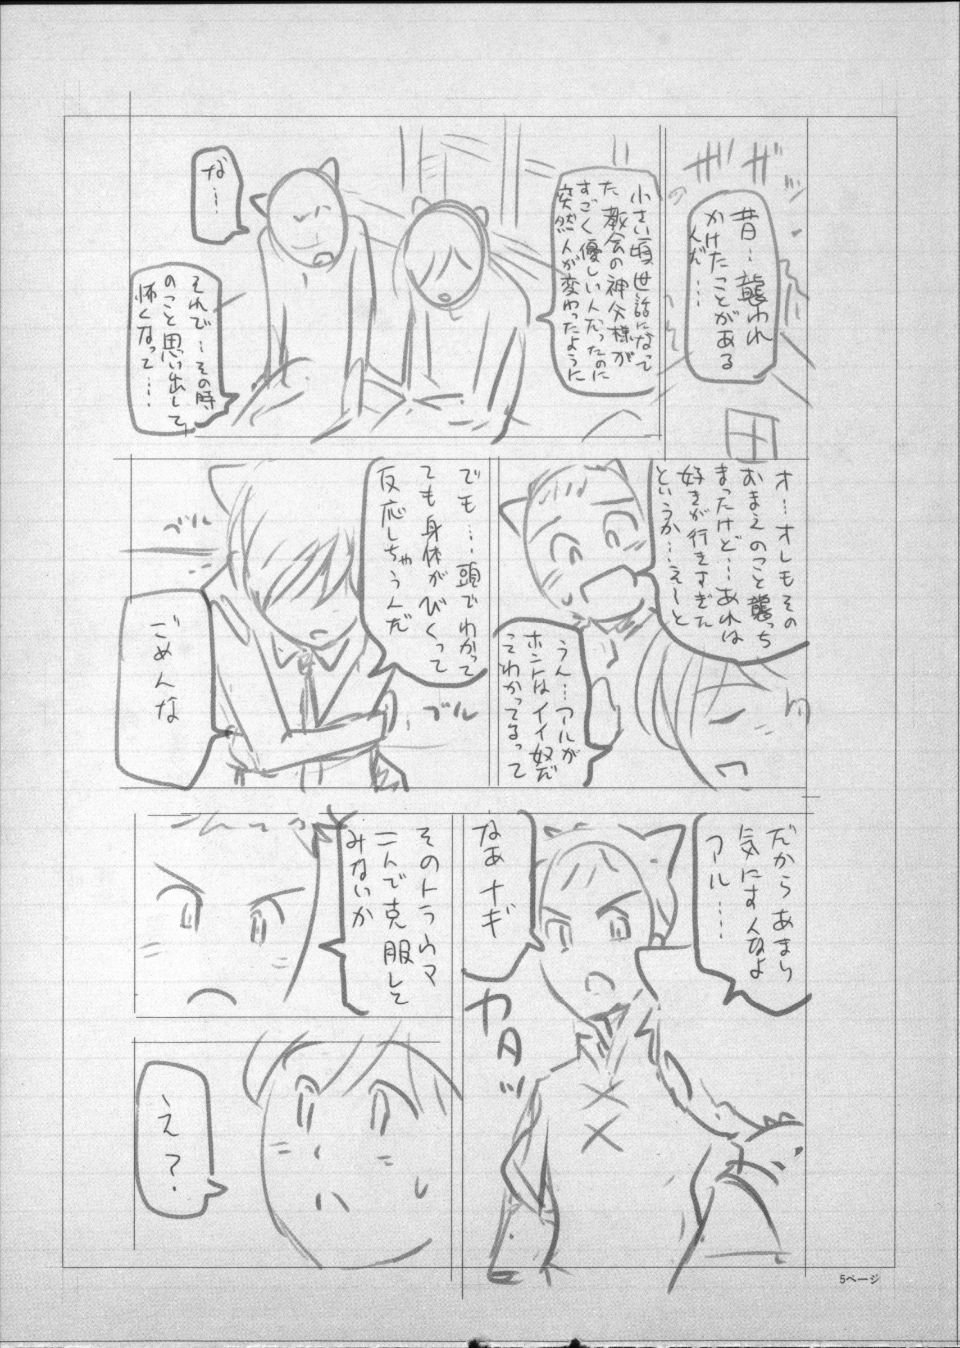 ザ
ザ
昔…襲われ
かけたことがある
んだ…
小さい頃世話になって
た教会の神父様が
すごく優しい人だったのに
突然人が変わったように
な…
それで…その時
のこと思い出して
怖くなって…
オ…オレもその
おまえのこと襲っち
まったけど…あれは
好きが行きすぎた
というか…えーと
うん…アルが
ホントはイイ奴だ
ってわかってるって
でも…頭でわかって
ても身体がびくって
反応しちゃうんだ
ブル
ブル
ごめんな
だからあまり
気にすんなよ
アル…
なあナギ
カタッ
そのトラウマ
二人で克服して
みないか
え？
5ページ